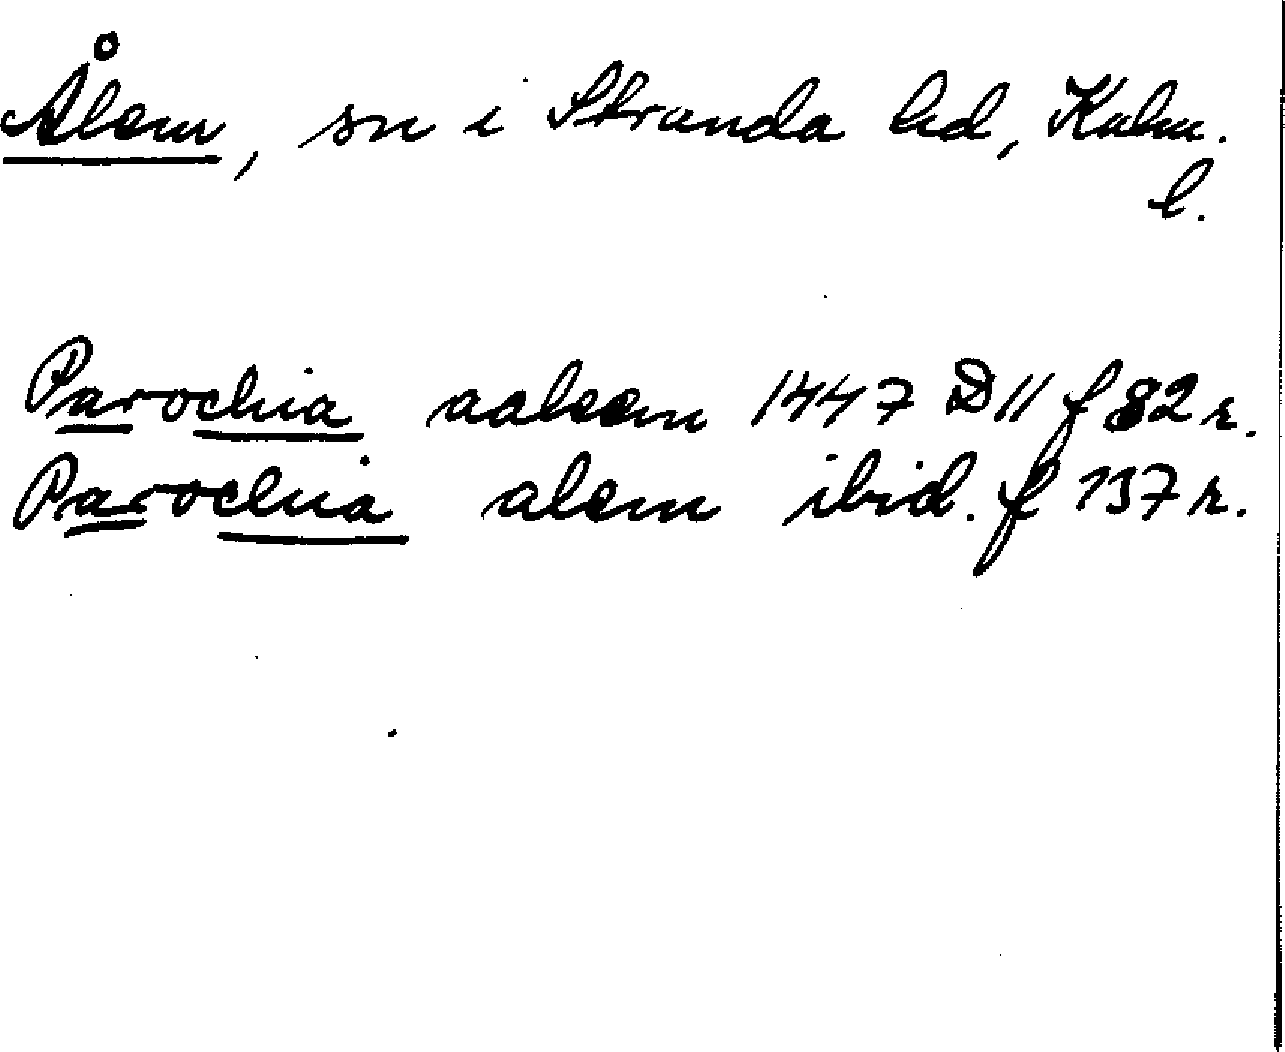 Ålem, sn i Stranda hd, Kalm.
l.
Parochia aaleem 1447 D11 f 82 r.
Parochia alem ibid. f 137 r.